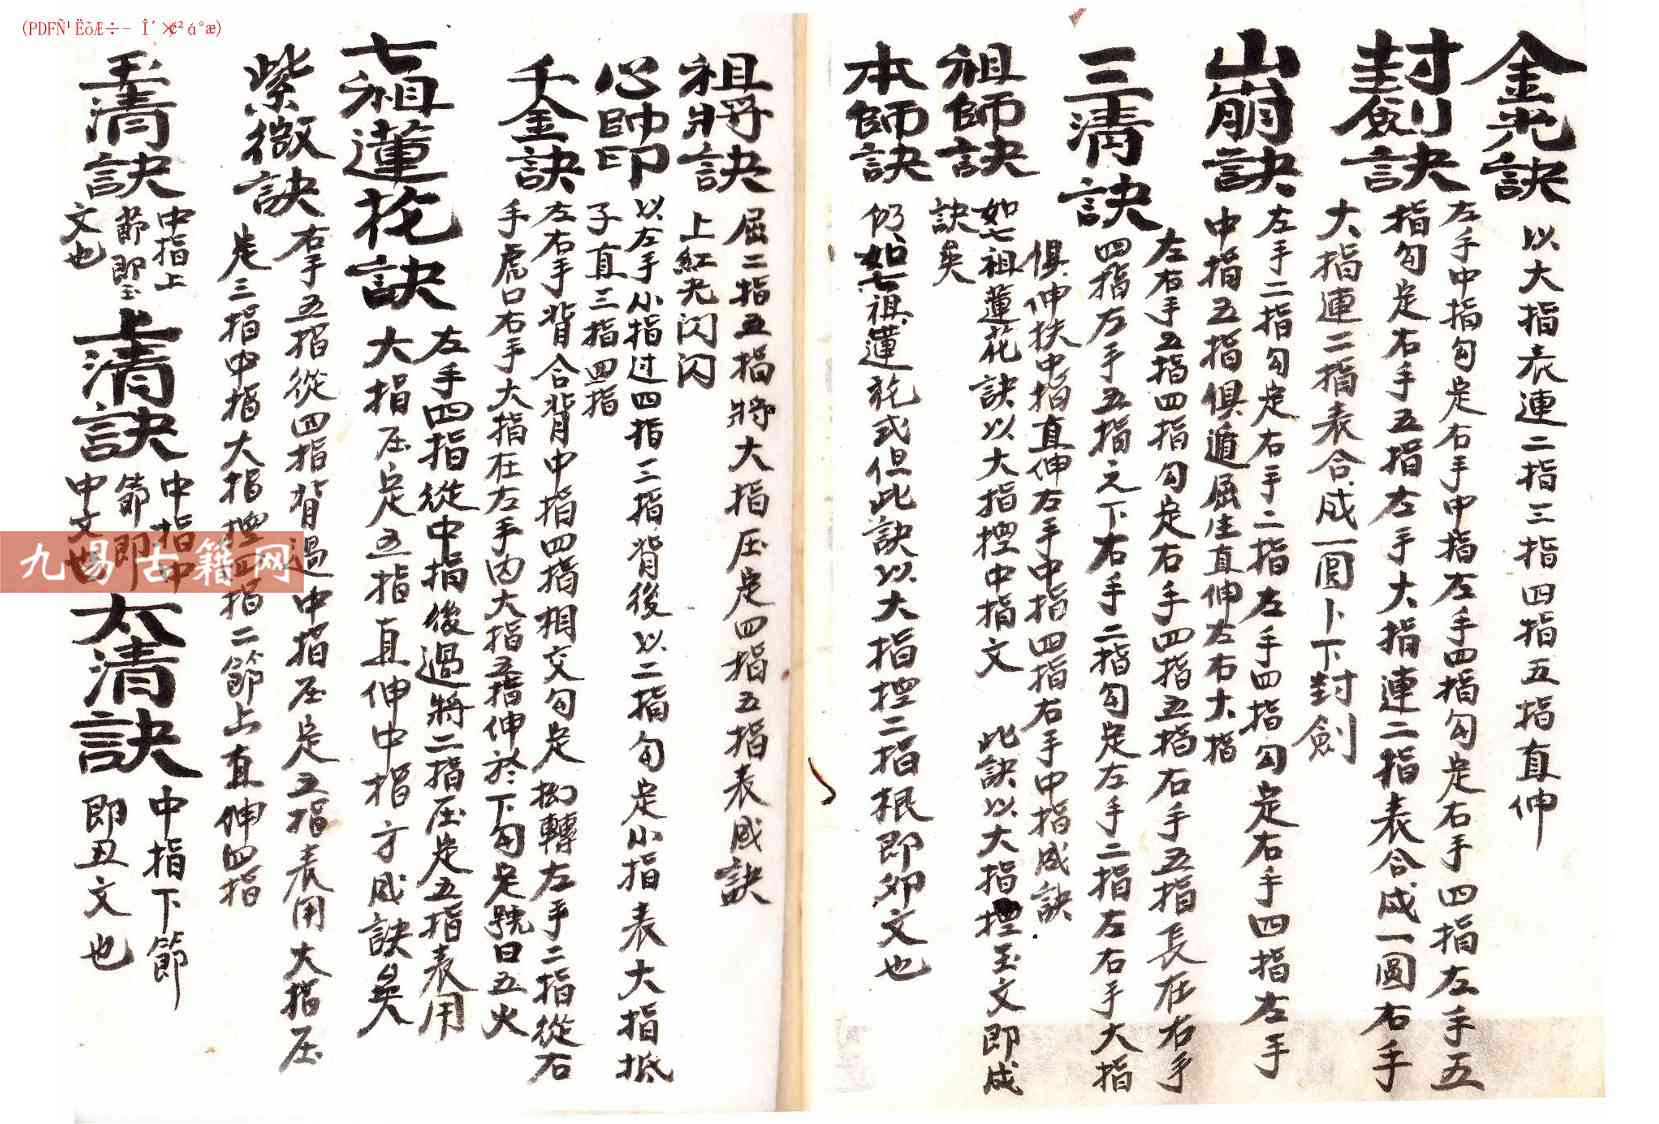 金光訣 以大指表連二指三指四指五指直伸
封劍訣 左手中指勾定右手中指左手四指勾定右手四指左手五
指勾定右手五指左手大指連二指表合成一圓右手
大指連二指表合成一圓卜下封劍
山崩訣 左手二指勾定右手二指左手四指勾定右手四指左手
中指五指俱遁屈生直伸左右大指
三清訣 左右手五指四指勾定右手四指五指右手五指長在右手
四指左手五指之下右手二指勾定左手二指左右手大指
俱伸扶中指直伸右手中指四指右手中指成訣
祖師訣 如七祖蓮花訣以大指捏中指文 此訣以大指捏玉文即成
訣矣
本師訣 仍如七祖蓮花式但此訣以大指捏二指根即卯文也
祖將訣 屈二指五指將大指压定四指五指表成訣
上紅光閃閃
心帥印 以左手小指过四指三指背後以二指勾定小指表大指抵
子直三指四指
千金訣 左右手背合背中指四指相交勾定拗轉左手二指從右
手虎口右手大指在左手内大指五指伸於下勾定號曰五火
七祖蓮花訣 左手四指從中指後過將二指压定五指表用
大指压定五指直伸中指方成訣矣
紫微訣 右手五指從四指背過中指压定五指表用大指压
定三指中指大指捏四指二節上直伸四指
玉清訣 中指上
節即玉
文也
上清訣 中指中
節即
中文也
太清訣 中指下節
即丑文也
九易古籍网
(PDFÑ¹ËõÆ÷- Î´×¢²á°æ)